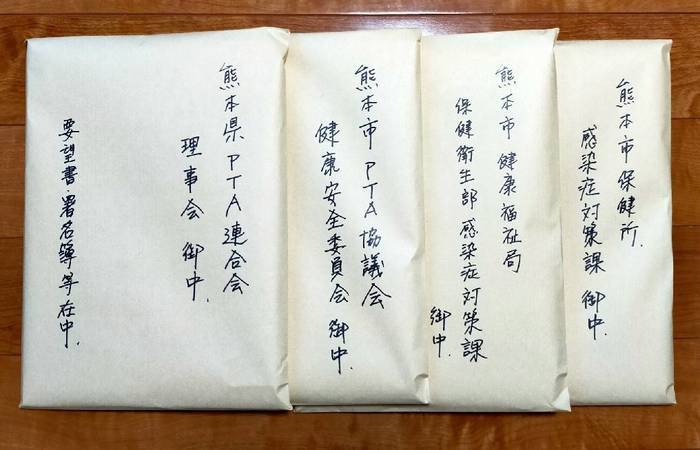 熊本県PTA連合会
理事会 御中.
要望書・署名簿等在中.
熊本市PTA協議会
健康安全委員会 御中.
熊本市 健康福祉局
保健衛生部 感染症対策課
御中.
熊本市保健所.
感染症対策課 御中.